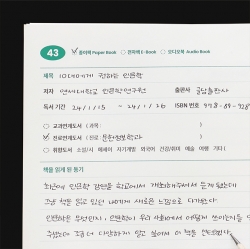 43 ✓종이책 Paper Book ○전자책 E-Book ○오디오북 Audio Book
제목 10대에게 권하는 인문학
저자 연세대학교 인문학연구원 출판사 글담출판사
독서 기간 24/1/15 ~ 24/1/26 ISBN 번호 978-89-928
○교과연계도서 (과목: )
✓진로연계도서 (진로: 문헌정보학과 )
○취향도서 소설/시 에세이 자기계발 외국어 건강/취미 예술 여행 기타(
책을 읽게 된 동기
최근에 인문학 강연을 학교에서 개최해주셔서 듣게 되었는데
그냥 책을 읽고 있던 나에게 새로운 느낌으로 다가왔다.
인문학은 무엇인지, 인문학이 우리 사회에서 어떻게 쓰이는지 등
조금 더 다양하게 알고 싶어서 이 책을